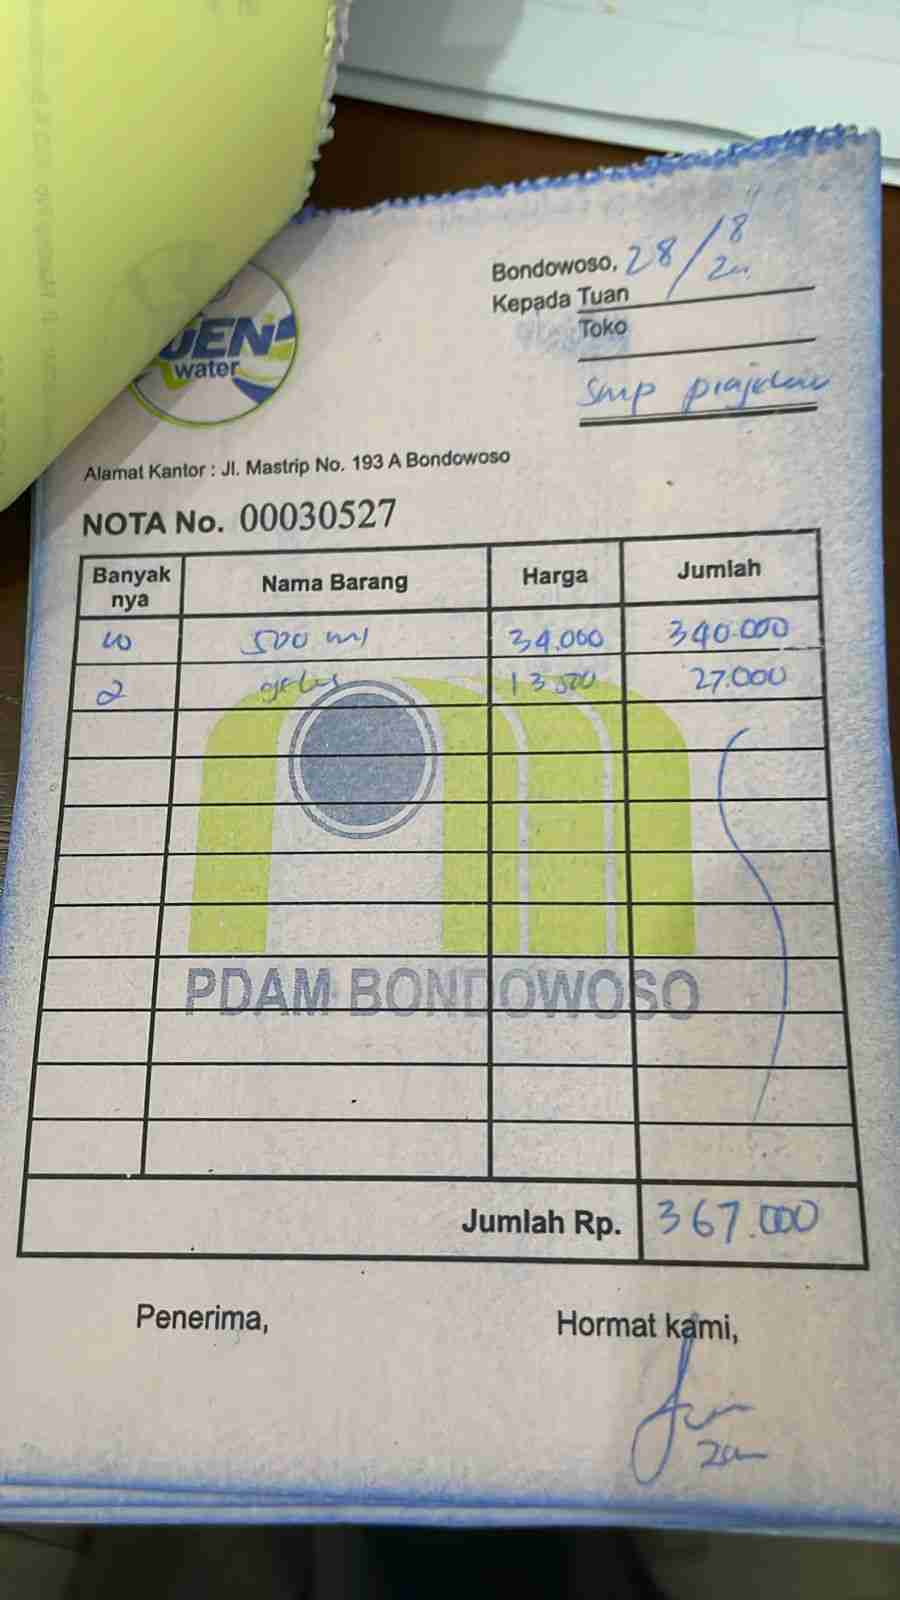 Bondowoso, 28/8
Kepada Tuan
Toko
smp prajekan
water
Alamat Kantor : Jl. Mastrip No. 193 A Bondowoso
NOTA No. 00030527
Banyak nya Nama Barang Harga Jumlah
10 500 ml 34.000 340.000
2 gelas 13.500 27.000
PDAM BONDOWOSO
Jumlah Rp. 367.000
Penerima, Hormat kami,